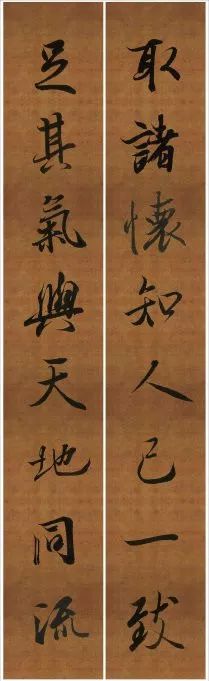 取諸懷知人己一致
足其氣與天地同流